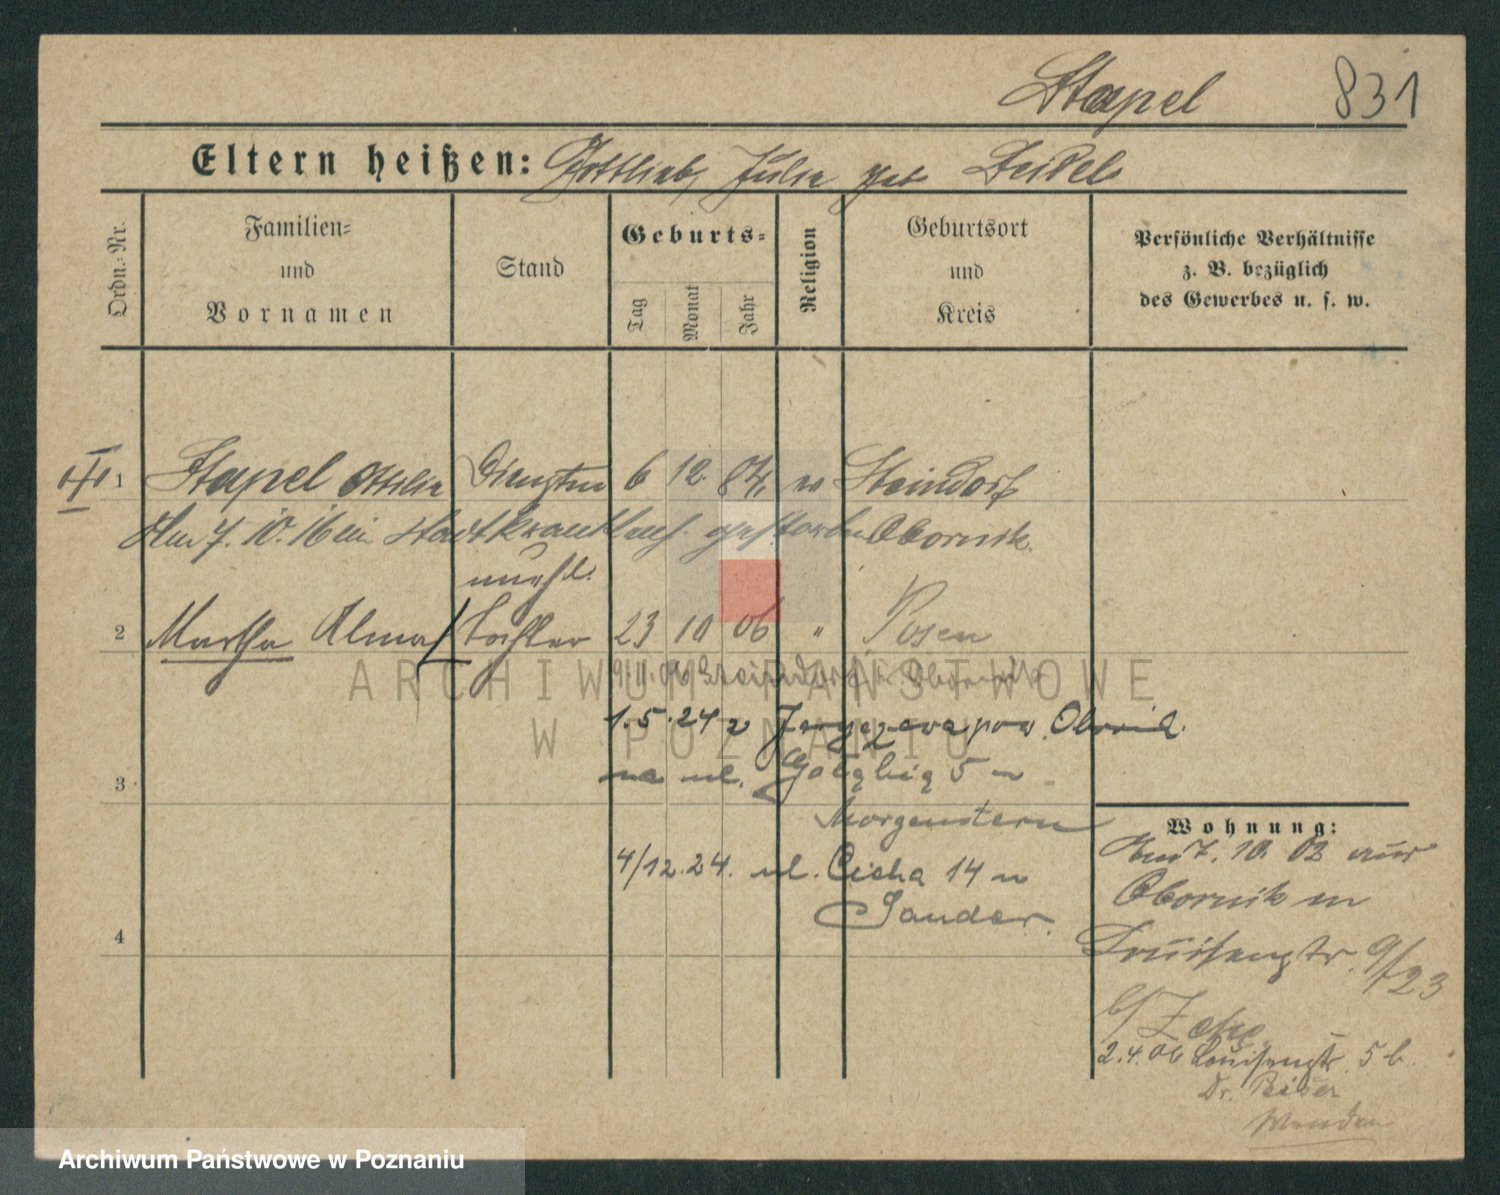 Stapel 831
Eltern heißen: Gottlieb, Julie geb. Seidel
Ordn.-Nr.
Familien-
und
Vornamen
Stand
Geburts-
Tag
Monat
Jahr
Religion
Geburtsort
und
Kreis
Persönliche Verhältnisse
z. B. bezüglich
des Gewerbes u. s. w.
1 Stapel Ottilie 6 12. 84. Steindorf
Am 7. 10. 16 im Stadtkrankenh. gestorben Obornik.
unehl.
2 Martha Alma Tochter 23 10 06 " Posen
9.11.06 Obornik
1.5.24 z pow. Obornik
na ul. Gołębią 5 u
3 Morgenstern
4/12.24. ul. Cicha 14 u
Sander.
4
Wohnung:
7. 10. 03 aus
Obornik in
Louisenstr. 9/23
b/
2.4.06 Louisenstr. 5 b.
Dr.
ARCHIWUM PAŃSTWOWE
W POZNANIU
Archiwum Państwowe w Poznaniu